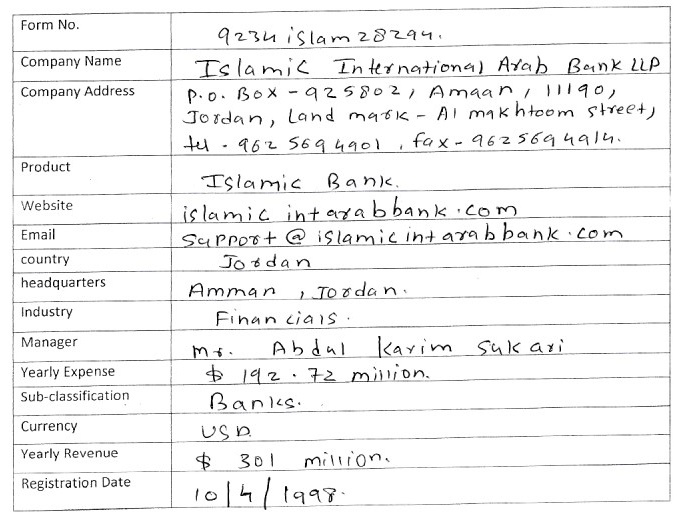 Form No. 9234islam28294.
Company Name Islamic International Arab Bank LLP
Company Address P.O. Box - 925802, Amaan, 11190,
Jordan, Land mark - Al makhtoom street,
tel - 962 5694901, fax - 9625694914.
Product Islamic Bank.
Website islamicintarabbank.com
Email support@islamicintarabbank.com
country Jordan
headquarters Amman, Jordan.
Industry Financials.
Manager Mr. Abdul Karim Sukari
Yearly Expense $ 192.72 million.
Sub-classification Banks.
Currency USD
Yearly Revenue $ 301 million.
Registration Date 10/4/1998.